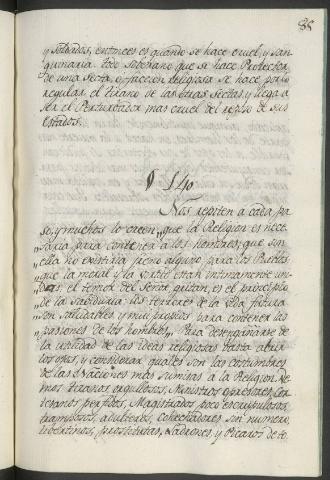 88
y Soldados, entonces es quando se hace cruel, y san
guinaria. todo Soberano que se hace Protector
de una Secta, o faccion religiosa se hace por lo
regular el tirano de las otras Sectas, y llega a
ser el Perturbador mas cruel del reposo de sus
estados.
§ 140
Nos repiten a cada pa
so, y muchos lo creen, „que la Religion es nece
„saria para contener a los hombres; que sin
„ella no existiria freno alguno para los Pueblos
„que la moral y la virtud estan intimamente uni
„das, el temor del Señor, gritan, es el principio
„de la Sabiduria: los terrores de la vida futura
„son saludables y mui propios para contener las
„pasiones de los hombres„. Para desengañarse de
la utilidad de las ideas religiosas basta abrir
los ojos, y considerar quales son las costumbres
de las Naciones mas sumisas a la Religion. Ve
mos tiranos orgullosos, Ministros opresores, Cor
tesanos perfidos, Magistrados poco escrupulosos,
tramposos, adulteros, cohechadores sin numero,
libertinos, prostitutas, Ladrones, y Picaros de to